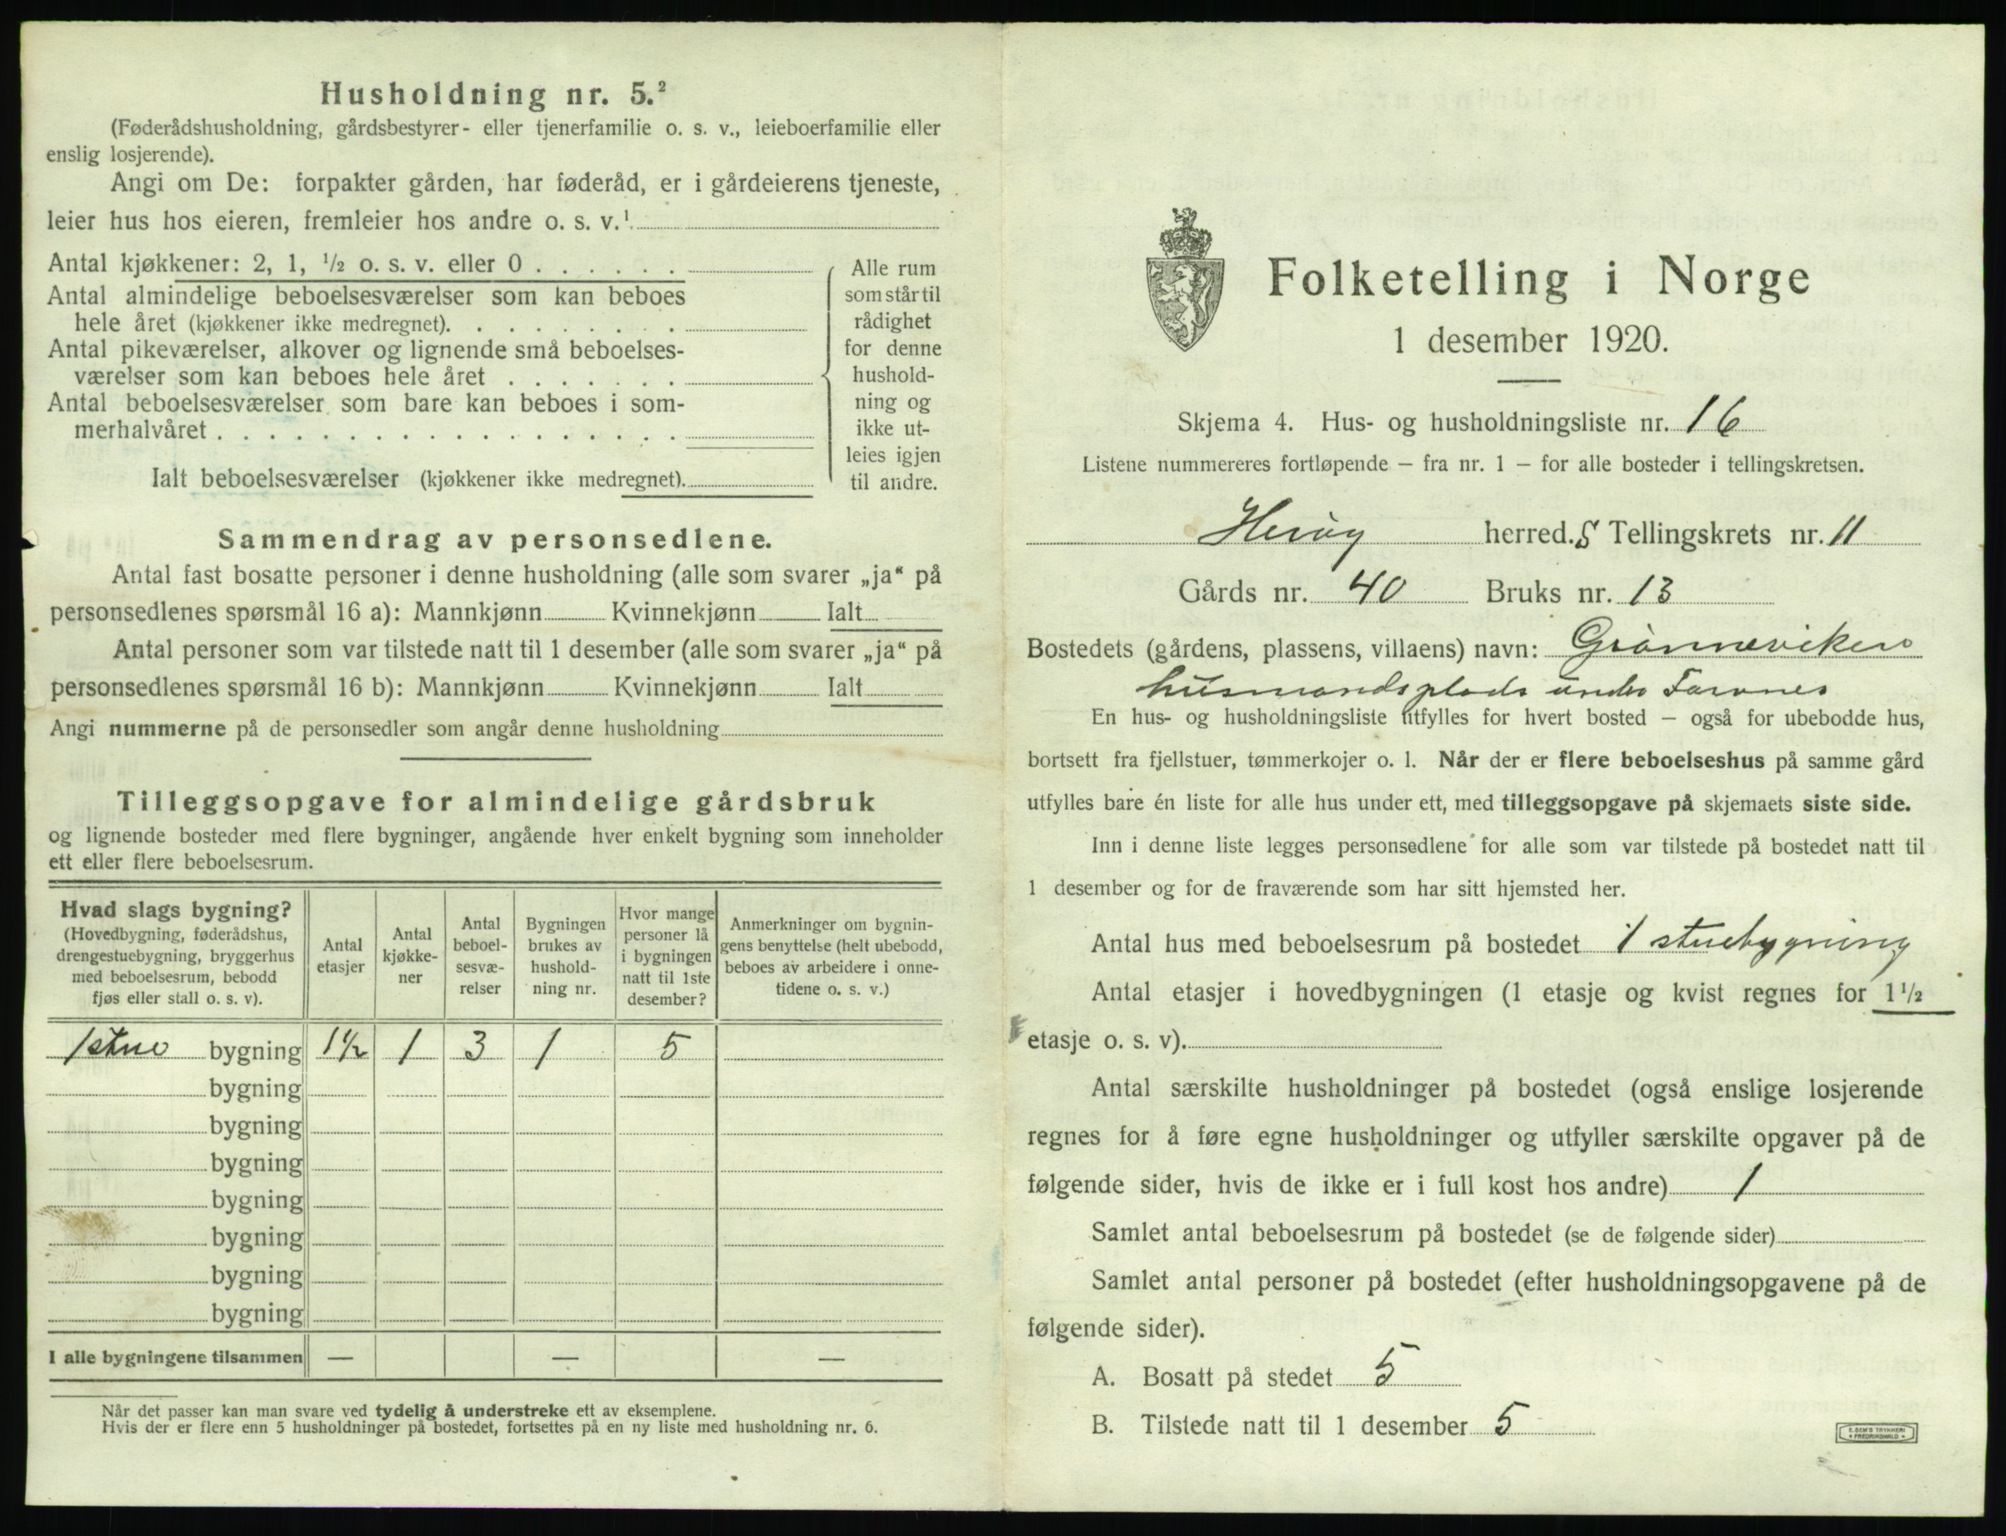 Husholdning nr. 5.²
(Føderådshusholdning, gårdsbestyrer- eller tjenerfamilie o. s. v., leieboerfamilie eller
enslig losjerende).
Angi om De: forpakter gården, har føderåd, er i gårdeierens tjeneste,
leier hus hos eieren, fremleier hos andre o. s. v.¹
Antal kjøkkener: 2, 1, ½ o. s. v. eller 0 . . . . . .
Antal almindelige beboelsesværelser som kan beboes
hele året (kjøkkener ikke medregnet). . . . . . . . .
Antal pikeværelser, alkover og lignende små beboelses-
værelser som kan beboes hele året . . . . . . .
Antal beboelsesværelser som bare kan beboes i som-
merhalvåret . . . . . . . . . . . . . . . . . .
Alle rum
som står til
rådighet
for denne
hushold-
ning og
ikke ut-
leies igjen
til andre.
Ialt beboelsesværelser (kjøkkener ikke medregnet).
Sammendrag av personsedlene.
Antal fast bosatte personer i denne husholdning (alle som svarer „ja“ på
personsedlenes spørsmål 16 a): Mannkjønn Kvinnekjønn Ialt
Antal personer som var tilstede natt til 1 desember (alle som svarer „ja“ på
personsedlenes spørsmål 16 b): Mannkjønn Kvinnekjønn Ialt
Angi nummerne på de personsedler som angår denne husholdning
Tilleggsopgave for almindelige gårdsbruk
og lignende bosteder med flere bygninger, angående hver enkelt bygning som inneholder
ett eller flere beboelsesrum.
Hvad slags bygning?
(Hovedbygning, føderådshus,
drengestuebygning, bryggerhus
med beboelsesrum, bebodd
fjøs eller stall o. s. v).
Antal
etasjer
Antal
kjøkke-
ner
Antal
beboel-
sesvæ-
relser
Bygningen
brukes av
hushold-
ning nr.
Hvor mange
personer lå
i bygningen
natt til 1ste
desember?
Anmerkninger om bygnin-
gens benyttelse (helt ubebodd,
beboes av arbeidere i onne-
tidene o. s. v.)
1 stue bygning 1½ 1 3 1 5
bygning
bygning
bygning
bygning
bygning
bygning
bygning
I alle bygningene tilsammen — — —
Når det passer kan man svare ved tydelig å understreke ett av eksemplene.
Hvis der er flere enn 5 husholdninger på bostedet, fortsettes på en ny liste med husholdning nr. 6.
Folketelling i Norge
1 desember 1920.
Skjema 4. Hus- og husholdningsliste nr. 16
Listene nummereres fortløpende – fra nr. 1 – for alle bosteder i tellingskretsen.
Herøy herred. S Tellingskrets nr. 11
Gårds nr. 40 Bruks nr. 13
Bostedets (gårdens, plassens, villaens) navn: Grønneviken
husmandsplads under Tarvnes
En hus- og husholdningsliste utfylles for hvert bosted – også for ubebodde hus,
bortsett fra fjellstuer, tømmerkojer o. l. Når der er flere beboelseshus på samme gård
utfylles bare én liste for alle hus under ett, med tilleggsopgave på skjemaets siste side.
Inn i denne liste legges personsedlene for alle som var tilstede på bostedet natt til
1 desember og for de fraværende som har sitt hjemsted her.
Antal hus med beboelsesrum på bostedet 1 stuebygning
Antal etasjer i hovedbygningen (1 etasje og kvist regnes for 1½
etasje o. s. v).
Antal særskilte husholdninger på bostedet (også enslige losjerende
regnes for å føre egne husholdninger og utfyller særskilte opgaver på de
følgende sider, hvis de ikke er i full kost hos andre) 1
Samlet antal beboelsesrum på bostedet (se de følgende sider)
Samlet antal personer på bostedet (efter husholdningsopgavene på de
følgende sider).
A. Bosatt på stedet 5
B. Tilstede natt til 1 desember 5
E. SEM'S TRYKKERI
FREDRIKSHALD